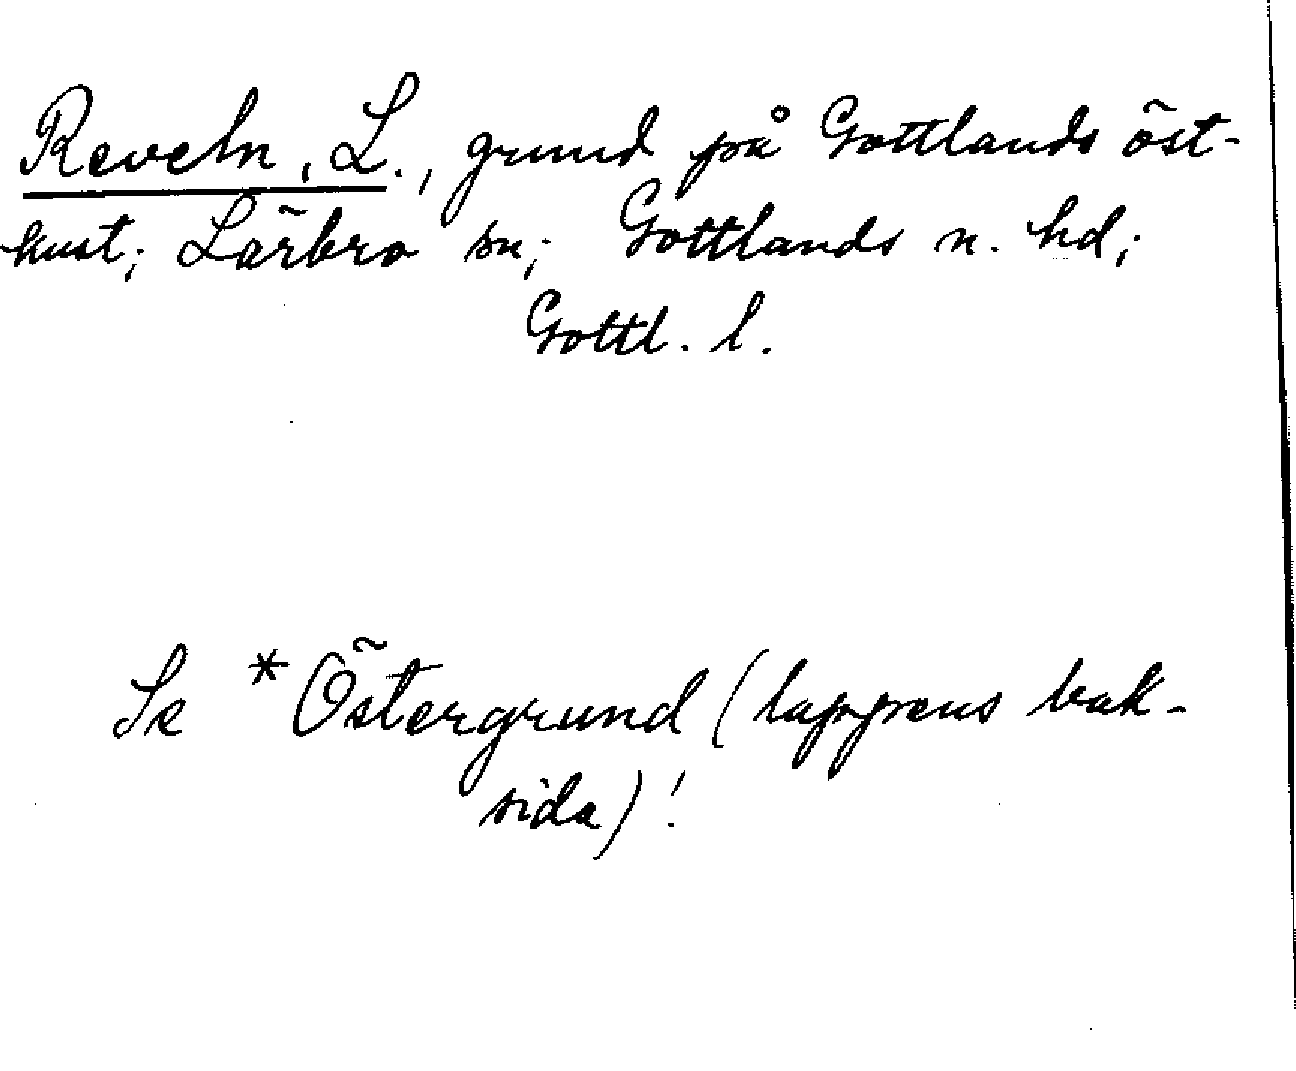 Reveln, L., grund på Gottlands öst-
kust; Lärbro sn; Gottlands n. hd;
Gottl. l.
Se *Östergrund (lappens bak-
sida)!